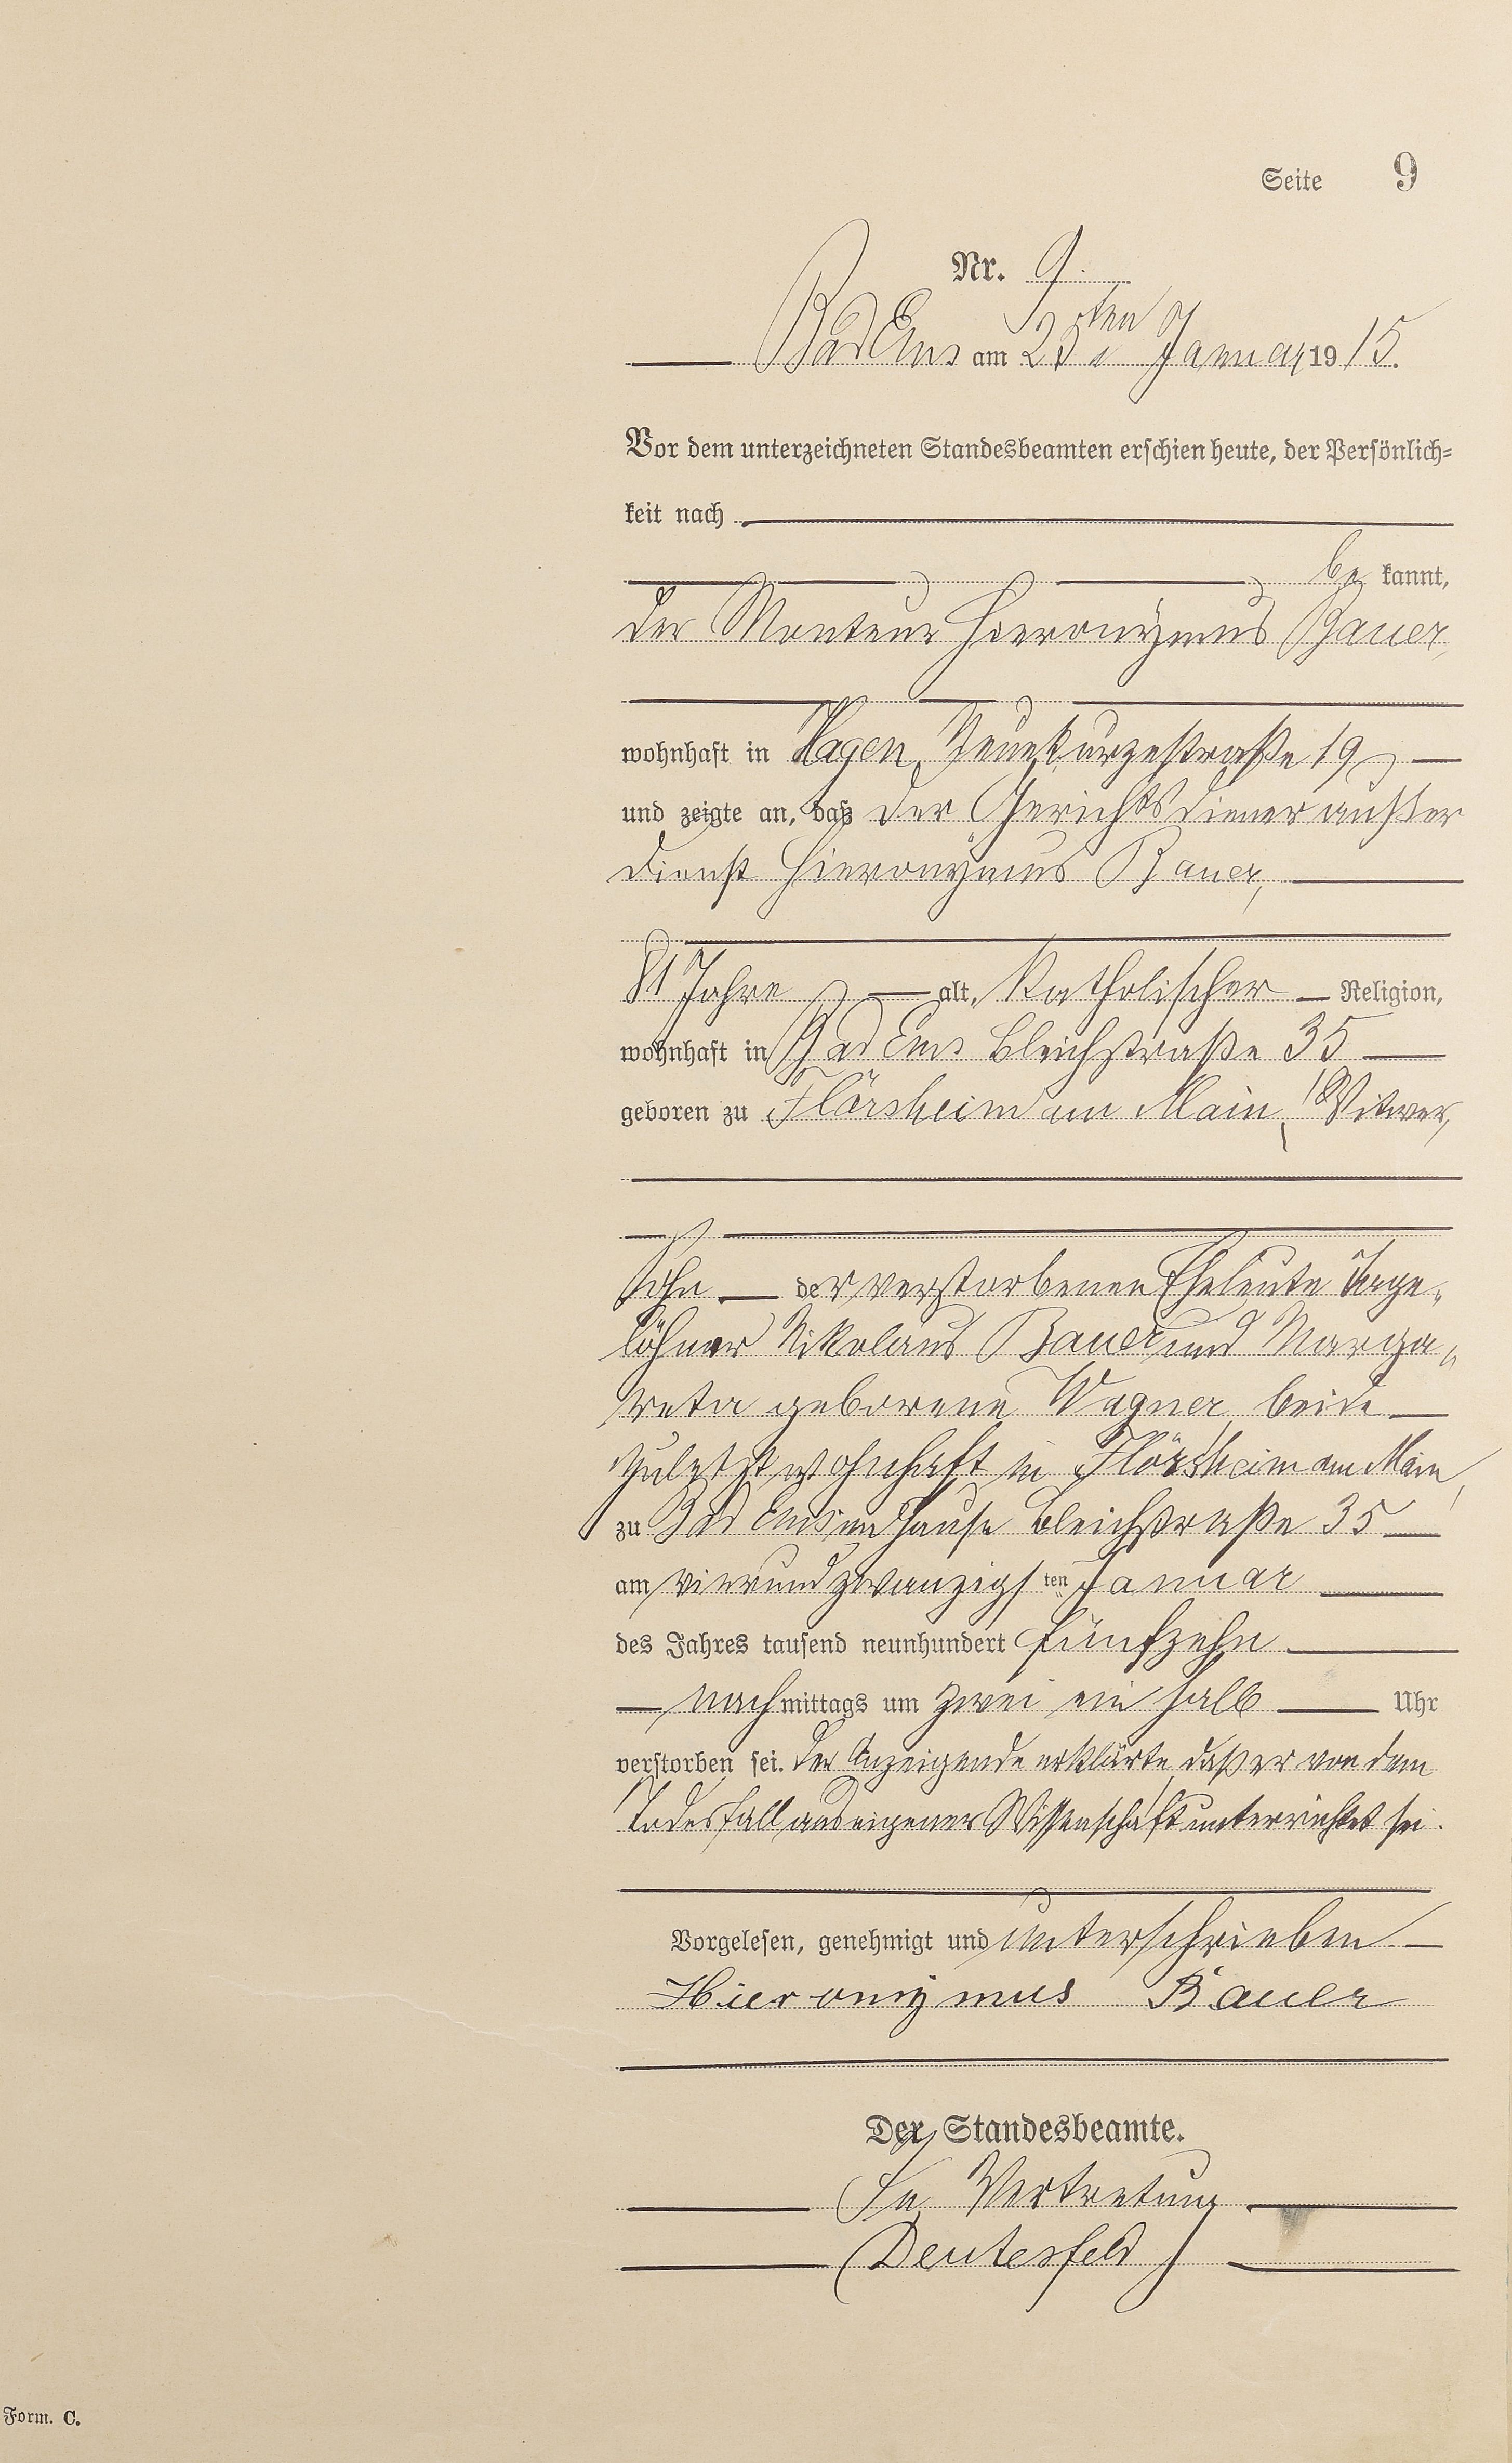 Seite 9
Nr. 9.
Bad Ems am 25ten Januar 1915.
Vor dem unterzeichneten Standesbeamten erschien heute, der Persönlich-
keit nach
be kannt,
der Monteur Hieronymus Bauer,
wohnhaft in Hagen, Neuekurzestraße 19
und zeigte an, daß der Gerichtsdiener außer
Dienst Hieronymus Bauer,
81 Jahre alt, Katholischer Religion,
wohnhaft in Bad Ems Bleichstraße 35
geboren zu Flörsheim am Main, Witwer,
Sohn der verstorbenen Eheleute Tage-
löhner Nikolaus Bauer und Marga-
reta geborene Wagner, beide
zuletzt wohnhaft in Flörsheim am Main,
zu Bad Ems im Hause Bleichstraße 35
am vierundzwanzigsten Januar
des Jahres tausend neunhundert fünfzehn
nachmittags um zwei ein halb Uhr
verstorben sei. Der Anzeigende erklärte, daß er von dem
Todesfall aus eigener Wissenschaft unterrichtet sei.
Vorgelesen, genehmigt und unterschrieben
Hieronymus Bauer
Der Standesbeamte.
In Vertretung
Deutesfeld
Form. C.